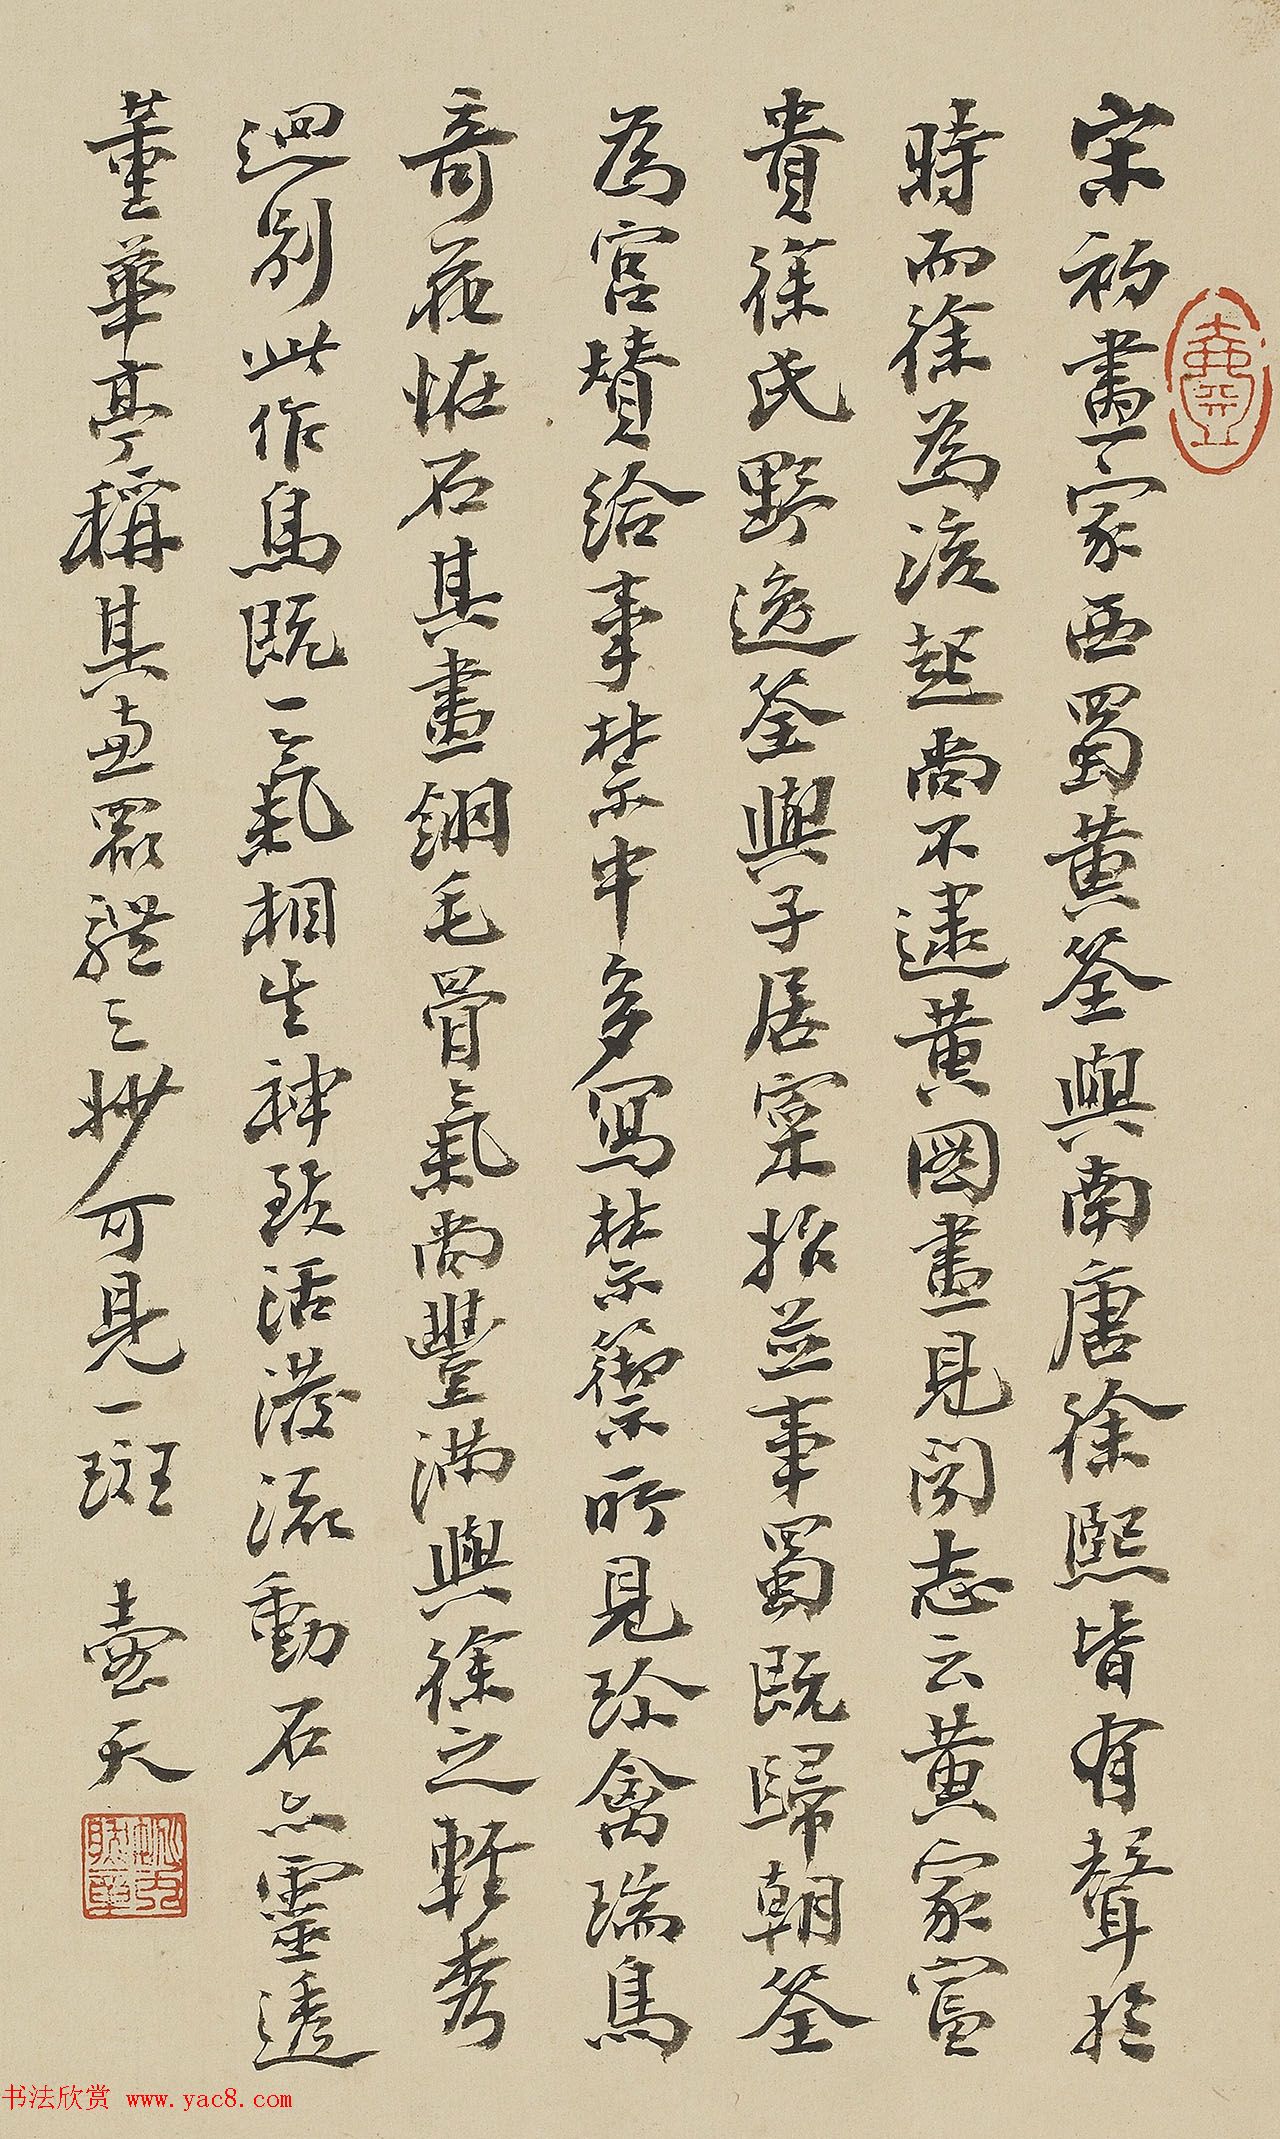 宋初畫家西蜀黃筌與南唐徐熙皆有聲於
時而徐為後起尚不逮黃圖畫見聞志云黃家富
貴徐氏野逸筌與子居寀始並事蜀既歸朝筌
為宮贊給事禁中多寫禁籞所見珍禽瑞鳥
奇花怪石其畫翎毛骨氣尚豐滿與徐之輕秀
迥別此作鳥既一氣相生神致活潑流動石亦靈透
董華亭稱其兼眾體之妙可見一斑 壺天
书法欣赏 www.yac8.com